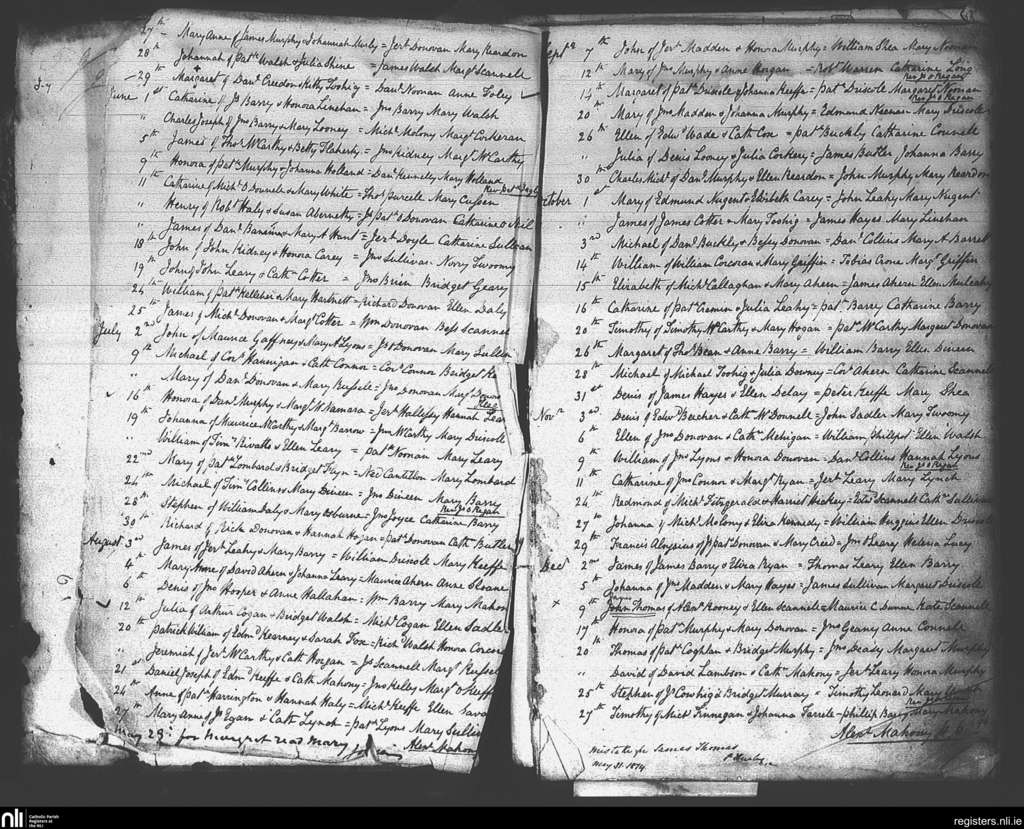 27th Mary Anne of James Murphy & Johannah = Jerh Donovan Mary Reardon
28th Johannah of Patk Walsh & Julia Shine = James Walsh Margt Scannell
29 Margaret of Danl Creedon & Kitty Toohig = Danl Noonan Anne Foley
June 1st Catharine of Js Barry & Honora Linehan = Jno Barry Mary Walsh
" Charles Joseph of Jno Barry & Mary Looney = Michl Molony Margt Corkeran
5th James of Thos McCarthy & Betty Flaherty = Jno Kidney Margt McCarthy
9th Honora of Patk Murphy & Johanna Holland = Danl Kennelly Mary Holland
11th Catharine of Michl O Donnell & Mary White = Thos Purcell Mary Cussen
" Henry of Robt Haly & Susan Abernethy = Js Patk O Donovan Catharine O Neil
" James of Danl & Mary A Hunt = Jerh Doyle Catharine Sullivan
18th John of John Kidney & Honora Carey = Jno Sullivan Norry Twoomy
19th John of John Leary & Cath Cotter = Jno Brien Bridget Geary
24th William of Patk Kelleher & Mary Hartnett = Richard Donovan Ellen Daly
25th James of Michl Donovan & Margt Cotter = Wm Donovan Bess Scannel
July 2nd John of Maurice Gaffney & Mary A Lyons = Js O Donovan Mary Cullen
9th Michael of Cors & Cath Connor = Cors Connor Bridget
" Mary of Danl Donovan & Mary Russell = Jno Donovan
16th Honora of Danl Murphy & Margt McNamara = Jerh Hallessy Hannah Lear
19th Johanna of Maurice McCarthy & Margt Barrow = Jno McCarthy Mary Driscole
" William of Timy & Ellen Leary = Patk Noonan Mary Leary
22nd Mary of Patk Lombard & Bridget Flyn = Ned Cantillon Mary Lombard
24th Michael of Timy Collins & Mary Dineen = Jno Dineen Mary Barry
Revd Js O Regan
28th Stephen of William Daly & Mary Osburne = Jno Joyce Catharine Barry
30th Richard of Rick Donovan & Hannah Hogan = Patk Donovan Cath Butler
August 3rd James of Jerh Leahy & Mary Barry = William Driscole Mary Keeffe
4th Mary Anne of David Ahern & Johanna Leary = Maurice Ahern Anne Sloane
6th Denis of Jno Hooper & Anne Hallahan = Wm Barry Mary Mahon
12th Julia of Arthur Cogan & Bridget Walsh = Michl Cogan Ellen Sadle
20th Patrick William of Edmd Kearney & Sarah Fox = Richd Walsh Honora Corcor
" Jeremiah of Jerh McCarthy & Cath Horgan = Js Scannell Margt Russel
21st Daniel Joseph of Edmd Keeffe & Cath Mahony = Jno Kelly Margt O Keeff
24th Anne of Patk Harrington & Hannah Haly = Michl Keeffe Ellen Sava
27th Mary Anne of Js Egan & Cath Lynch = Patk Lyons Mary Sulli
May 29: for Margret read Mary
Alexr Mahony
Septr 7th John of Jerh Madden & Honora Murphy = William Shea Mary Noonan
12th Mary of Jno Murphy & Anne Horgan = Robt Warren Catharine Long
Revd Js O Regan
14th Margaret of Patk Driscole & Johanna Keeffe = Patk Driscole Margaret Noonan
Revd Js O Regan
20th Mary of Jno Madden & Johanna Murphy = Edmund Keenan Mary Driscole
26th Ellen of Edwd Wade & Cath Cox = Patk Buckly Catharine Connell
" Julia of Denis Looney & Julia Corkery = James Butler Johanna Barry
30th Charles Michl of Danl Murphy & Ellen Reardon = John Murphy Mary Reardon
October 1st Mary of Edmund Nugent & Elisbeth Carey = John Leahy Mary Nugent
" James of James Cotter & Mary Toohig = James Hayes Mary Linehan
3rd Michael of Danl Buckly & Bessy Donovan = Danl Collins Mary A Barret
14th William of William Corcoran & Mary Griffin = Tobias Crone Margt Griffin
15th Elizabeth of Michl Callaghan & Mary Ahern = James Ahern Ellen Mulcahy
16th Catharine of Patk Cremin & Julia Leahy = Patk Barry Catharine Barry
20th Timothy of Timothy McCarthy & Mary Hogan = Patk McCarthy Margaret Donovan
26th Margaret of Thos Bean & Anne Barry = William Barry Ellen Dineen
28th Michael of Michael Toohig & Julia Downey = Cors Ahern Catharine Scannell
31st Denis of James Hayes & Ellen Delay = Peter Keeffe Mary Shea
Novr 3rd Denis of Edwd Beecher & Cath McDonnell = John Sadler Mary Twoomy
6th Ellen of Jno Donovan & Cath Mehigan = William Philpot Ellen Walsh
9th William of Jno Lyons & Honora Donovan = Danl Collins Hannah Lyons
Revd Js O Regan
11th Catharine of Jno Connor & Margt Ryan = Jerh Leary Mary Lynch
24th Redmond of Michl Fitzgerald & Harriet Hickey = Scannell Cath Sullivan
27th Johanna of Michl Molony & Eliza Kennedy = William Huggins Ellen Driscole
29th Francis Aloysius of Js Patk Donovan & Mary Creed = Jno O Leary Helena Lucy
Decr 2nd James of James Barry & Eliza Ryan = Thomas Leary Ellen Barry
5th Johanna of Jno Madden & Mary Hayes = James Sullivan Margaret Driscole
x 9th James
John Thomas of Alexr Rooney & Ellen Scannell = Maurice C Dunne Kate Scannell
17th Honora of Patk Murphy & Mary Donovan = Jno Geany Anne Connell
20th Thomas of Patk Coghlan & Bridget Murphy = Jno Deasy Margaret Murphy
" David of David Lambson & Cath Mahony = Jerh Leary Honora Murphy
25th Stephen of Js Cowhig & Bridget Murray = Timothy Leonard Mary
27th Timothy of Michl Finnegan & Johanna Farrell = Phillip Barry Mary Mahony
Alexr Mahony
mistake for James Thomas
May 31. 1874
nli Catholic Parish Registers at the NLI
registers.nli.ie